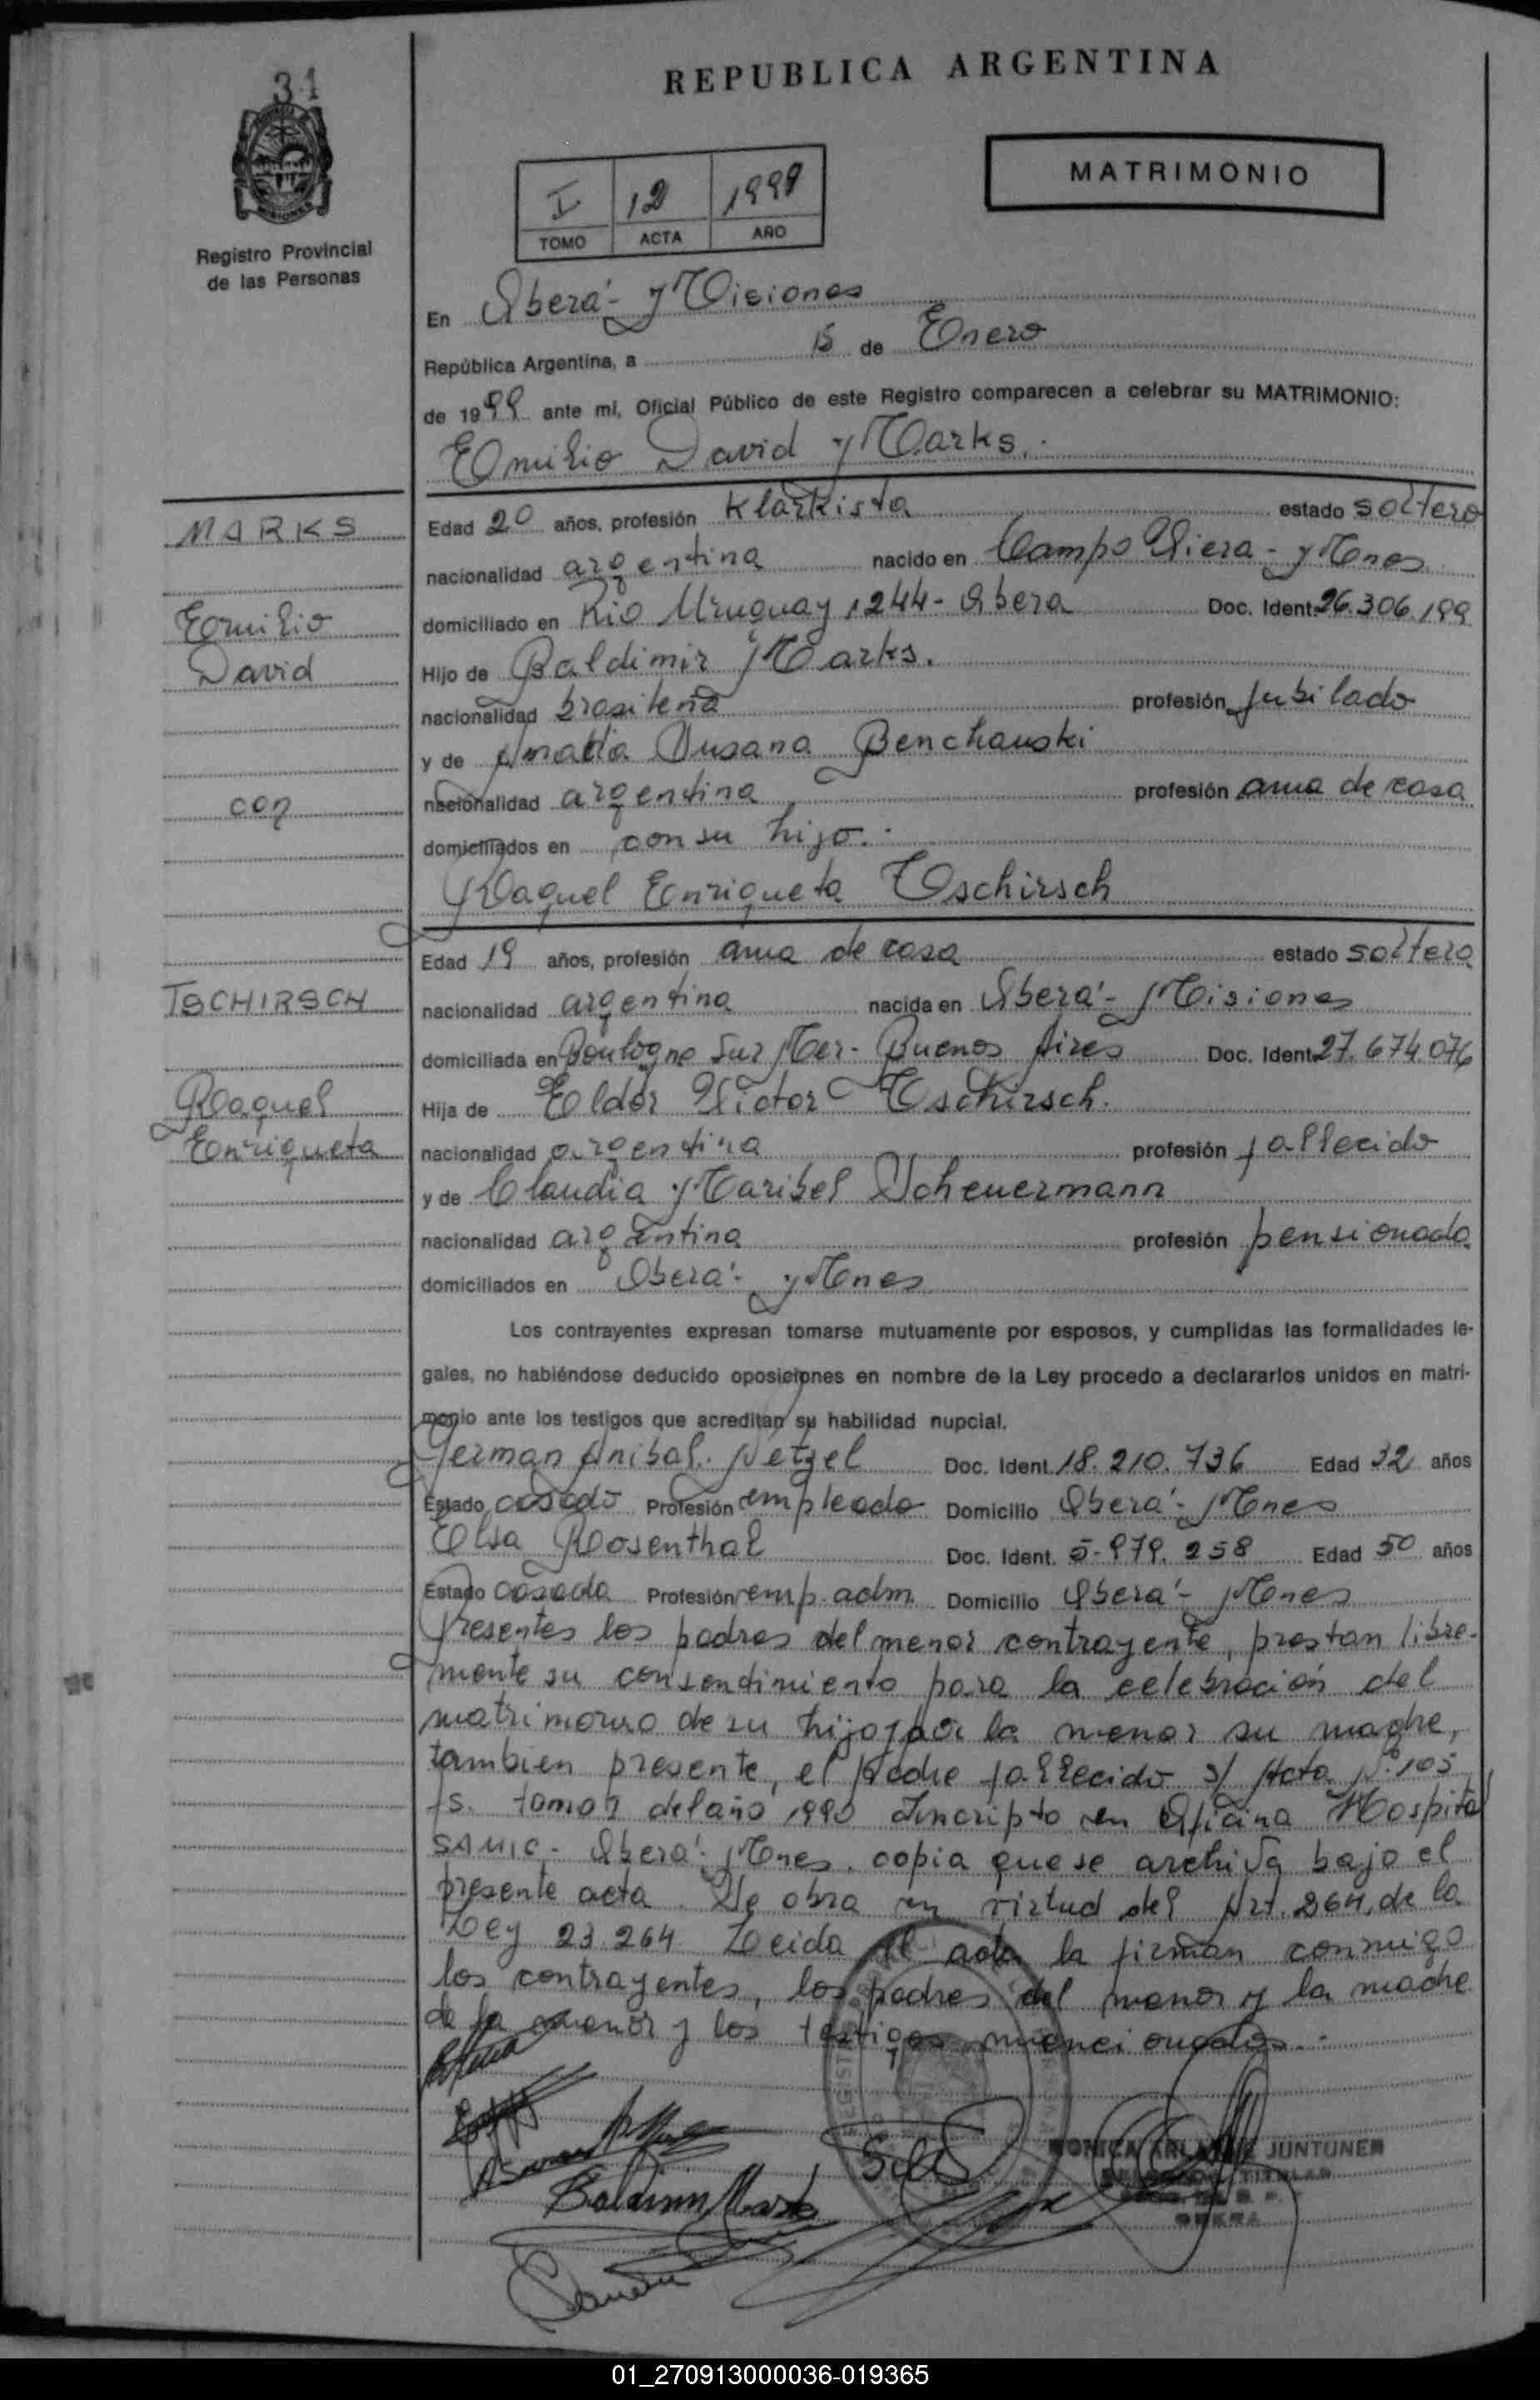 31
REPUBLICA ARGENTINA
MATRIMONIO
I 12 1999
TOMO ACTA AÑO
Registro Provincial
de las Personas
En Oberá - Misiones
República Argentina, a 15 de Enero
de 1999 ante mí, Oficial Público de este Registro comparecen a celebrar su MATRIMONIO:
Emilio David Marks.
MARKS
Emilio
David
con
TSCHIRSCH
Raquel
Enriqueta
Edad 20 años, profesión Klarkista estado soltero
nacionalidad argentina nacido en Campo Viera - Mnes
domiciliado en Rio Uruguay 1244 - Oberá Doc. Ident. 26.306.199
Hijo de Baldimir Marks.
nacionalidad brasileña profesión Jubilado
y de Amalia Susana Benchauski
nacionalidad argentina profesión ama de casa
domiciliados en con su hijo.-
Raquel Enriqueta Tschirsch
Edad 19 años, profesión ama de casa estado soltera
nacionalidad argentina nacida en Oberá - Misiones
domiciliada en Boulogne Sur Mer - Buenos Aires Doc. Ident. 27.674.076
Hija de Eldor Victor Tschirsch.
nacionalidad argentina profesión fallecido
y de Claudia Maribel Scheuermann
nacionalidad argentina profesión pensionada
domiciliados en Oberá - Mnes
Los contrayentes expresan tomarse mutuamente por esposos, y cumplidas las formalidades le-
gales, no habiéndose deducido oposiciones en nombre de la Ley procedo a declararlos unidos en matri-
monio ante los testigos que acreditan su habilidad nupcial.
German Anibal Netzel Doc. Ident. 18.210.736 Edad 32 años
Estado casado Profesión empleado Domicilio Oberá - Mnes
Elsa Rosenthal Doc. Ident. 5.979.258 Edad 50 años
Estado casada Profesión emp. adm. Domicilio Oberá - Mnes
Presentes los padres del menor contrayente, prestan libre-
mente su consentimiento para la celebración del
matrimonio de su hijo, por la menor su madre,
tambien presente, el padre fallecido s/ Acta Nº 105
fs. tomo 1 del año 1990 Inscripto en Oficina Hospital
SAMIC - Oberá - Mnes. copia que se archiva bajo el
presente acta. Se obra en virtud del Art. 264, de la
Ley 23.264. Leida el acta la firman conmigo
los contrayentes, los padres del menor y la madre
de la menor y los testigos mencionados.-
Baldimir Marks
JUNTUNEN
TITULAR
OBERA
01_270913000036-019365